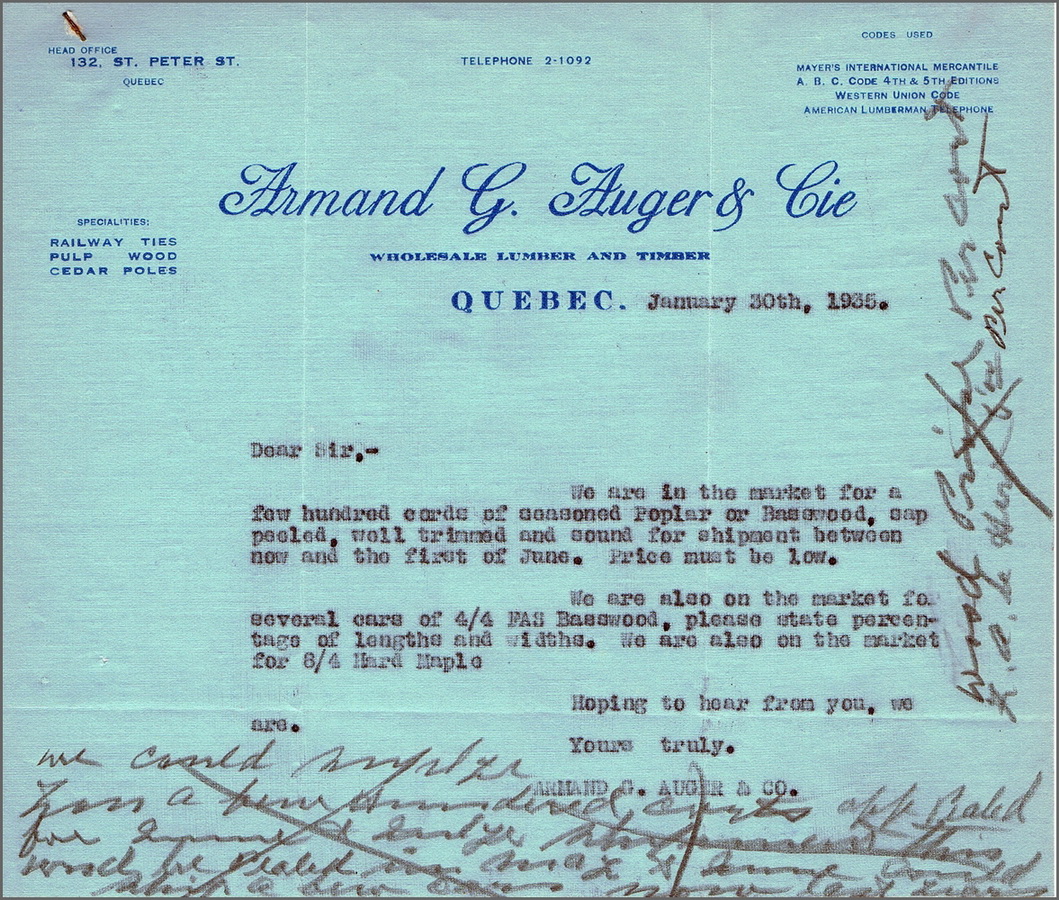 HEAD OFFICE
132, ST. PETER ST.
QUEBEC
TELEPHONE 2-1092
CODES USED
MAYER'S INTERNATIONAL MERCANTILE
A. B. C. CODE 4TH & 5TH EDITIONS
WESTERN UNION CODE
AMERICAN LUMBERMAN TELEPHONE
Armand G. Auger & Cie
SPECIALITIES:
RAILWAY TIES
PULP WOOD
CEDAR POLES
WHOLESALE LUMBER AND TIMBER
QUEBEC. January 30th, 1935.
Dear Sir,-
We are in the market for a
few hundred cords of seasoned Poplar or Basswood, sap
peeled, well trimmed and sound for shipment between
now and the first of June. Price must be low.
We are also on the market for
several cars of 4/4 FAS Basswood, please state percen-
tage of lengths and widths. We are also on the market
for 8/4 Hard Maple
Hoping to hear from you, we
are.
Yours truly.
ARMAND G. AUGER & CO.
we could
a hundred
for June &
would be in May & June
a few cars now last
wood
per cord